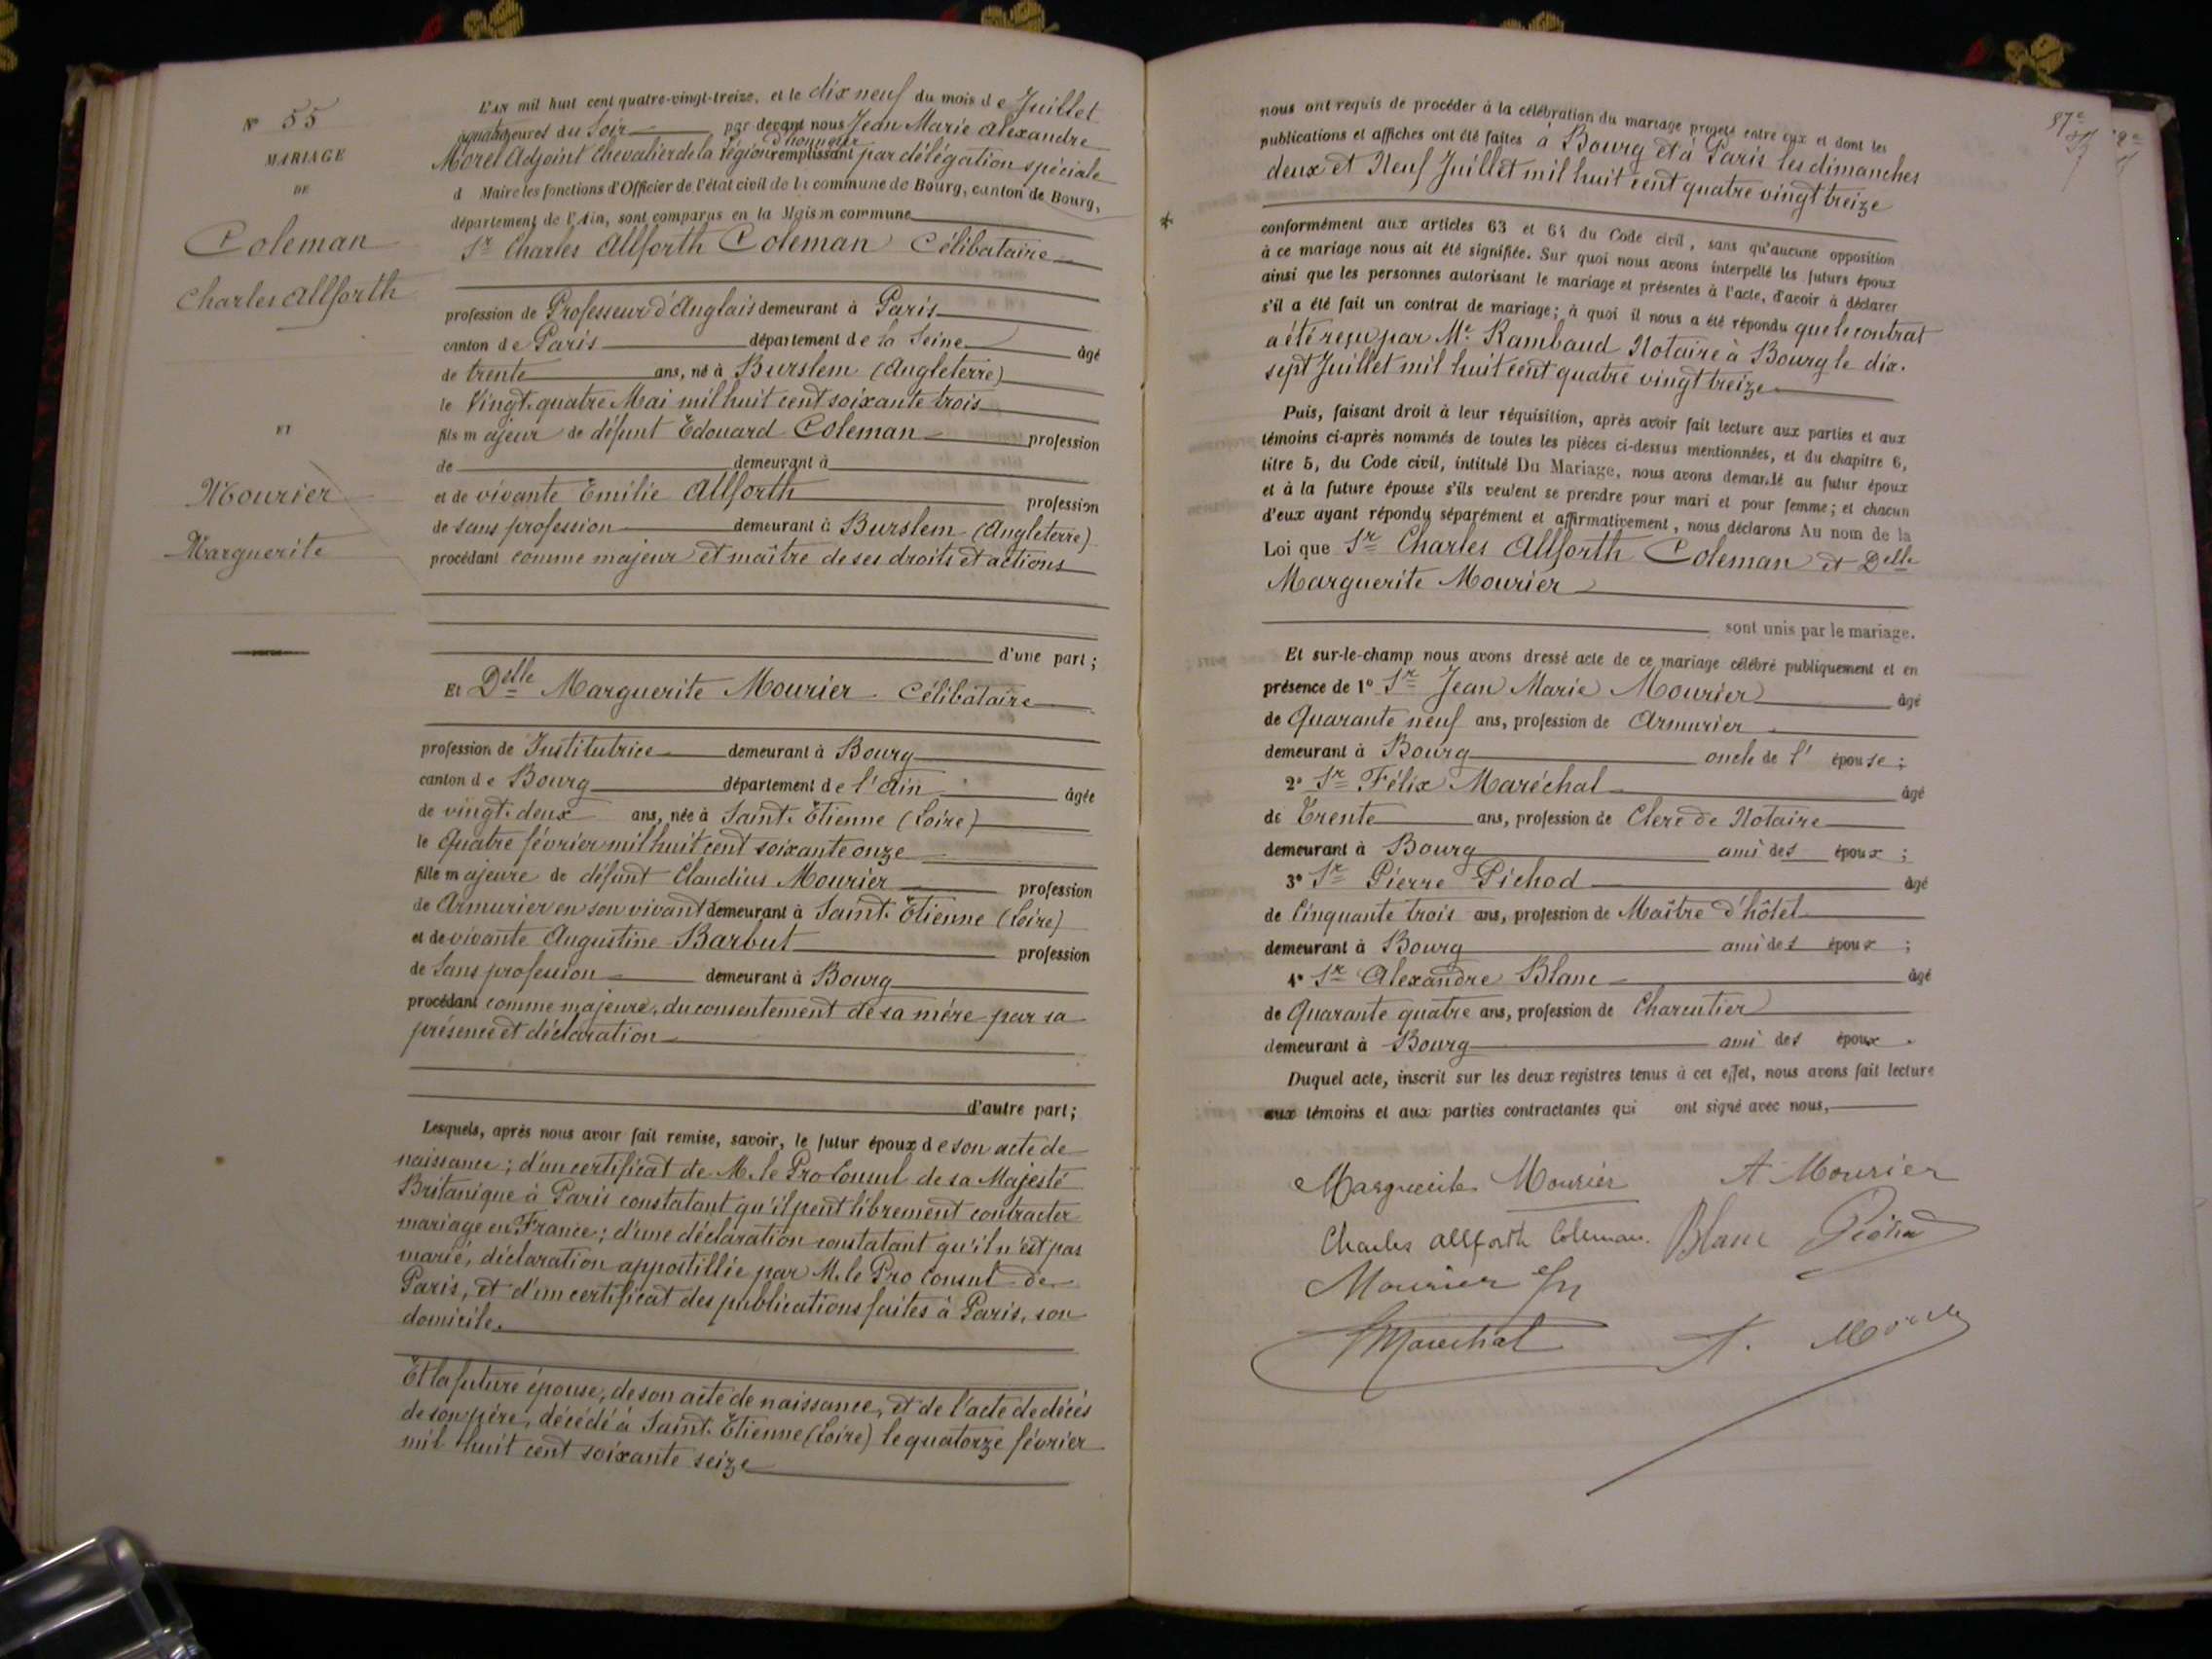 N° 55
MARIAGE
DE
Coleman
Charles Allforth
ET
Mourier
Marguerite
L'AN mil huit cent quatre-vingt-treize, et le dix neuf du mois de Juillet
à quatre heures du Soir par devant nous Jean Marie Alexandre
Morel Adjoint Chevalier de la légion d'honneur remplissant par délégation spéciale
d Maire les fonctions d'Officier de l'état civil de la commune de Bourg, canton de Bourg,
département de l'Ain, sont comparus en la Maison commune
Sr Charles Allforth Coleman Célibataire
profession de Professeur d'Anglais demeurant à Paris
canton de Paris département de la Seine âgé
de trente ans, né à Burslem (Angleterre)
le Vingt-quatre Mai mil huit cent soixante trois
fils majeur de défunt Edouard Coleman profession
de demeurant à
et de vivante Emilie Allforth profession
de sans profession demeurant à Burslem (Angleterre)
procédant comme majeur et maître de ses droits et actions
d'une part;
Et Delle Marguerite Mourier Célibataire
profession de Institutrice demeurant à Bourg
canton de Bourg département de l'Ain âgée
de vingt-deux ans, née à Saint-Etienne (Loire)
le quatre février mil huit cent soixante onze
fille majeure de défunt Claudius Mourier profession
de Armurier en son vivant demeurant à Saint-Etienne (Loire)
et de vivante Augustine Barbut profession
de Sans profession demeurant à Bourg
procédant comme majeure, du consentement de sa mère par sa
présence et déclaration
d'autre part;
Lesquels, après nous avoir fait remise, savoir, le futur époux de son acte de
naissance; d'un certificat de M. le Pro Consul de sa Majesté
Britanique à Paris constatant qu'il peut librement contracter
mariage en France; d'une déclaration constatant qu'il n'est pas
marié, déclaration appostillée par M. le Pro Consul de
Paris, et d'un certificat des publications faites à Paris, son
domicile.
Et la future épouse, de son acte de naissance, et de l'acte de décès
de son père, décédé à Saint-Etienne (Loire) le quatorze février
mil huit cent soixante seize
nous ont requis de procéder à la célébration du mariage projeté entre eux et dont les
publications et affiches ont été faites à Bourg et à Paris les dimanches
deux et Neuf Juillet mil huit cent quatre vingt treize
conformément aux articles 63 et 64 du Code civil, sans qu'aucune opposition
à ce mariage nous ait été signifiée. Sur quoi nous avons interpellé les futurs époux
ainsi que les personnes autorisant le mariage et présentes à l'acte, d'avoir à déclarer
s'il a été fait un contrat de mariage; à quoi il nous a été répondu que le contrat
a été reçu par Me Rambaud Notaire à Bourg le dix-
sept Juillet mil huit cent quatre vingt treize
Puis, faisant droit à leur réquisition, après avoir fait lecture aux parties et aux
témoins ci-après nommés de toutes les pièces ci-dessus mentionnées, et du chapitre 6,
titre 5, du Code civil, intitulé Du Mariage, nous avons demandé au futur époux
et à la future épouse s'ils veulent se prendre pour mari et pour femme; et chacun
d'eux ayant répondu séparément et affirmativement, nous déclarons Au nom de la
Loi que Sr Charles Allforth Coleman et Delle
Marguerite Mourier
sont unis par le mariage.
Et sur-le-champ nous avons dressé acte de ce mariage célébré publiquement et en
présence de 1° Sr Jean Marie Mourier âgé
de Quarante neuf ans, profession de Armurier
demeurant à Bourg oncle de l' épouse;
2° Sr Félix Maréchal âgé
de Trente ans, profession de Clerc de Notaire
demeurant à Bourg ami des époux;
3° Sr Pierre Pichod âgé
de Cinquante trois ans, profession de Maître d'hôtel
demeurant à Bourg ami des époux;
4° Sr Alexandre Blanc âgé
de Quarante quatre ans, profession de Charcutier
demeurant à Bourg ami des époux.
Duquel acte, inscrit sur les deux registres tenus à cet effet, nous avons fait lecture
aux témoins et aux parties contractantes qui ont signé avec nous,
Marguerite Mourier A Mourier
Charles Allforth Coleman. Blanc Pichod
Mourier
Marechal A. Morel